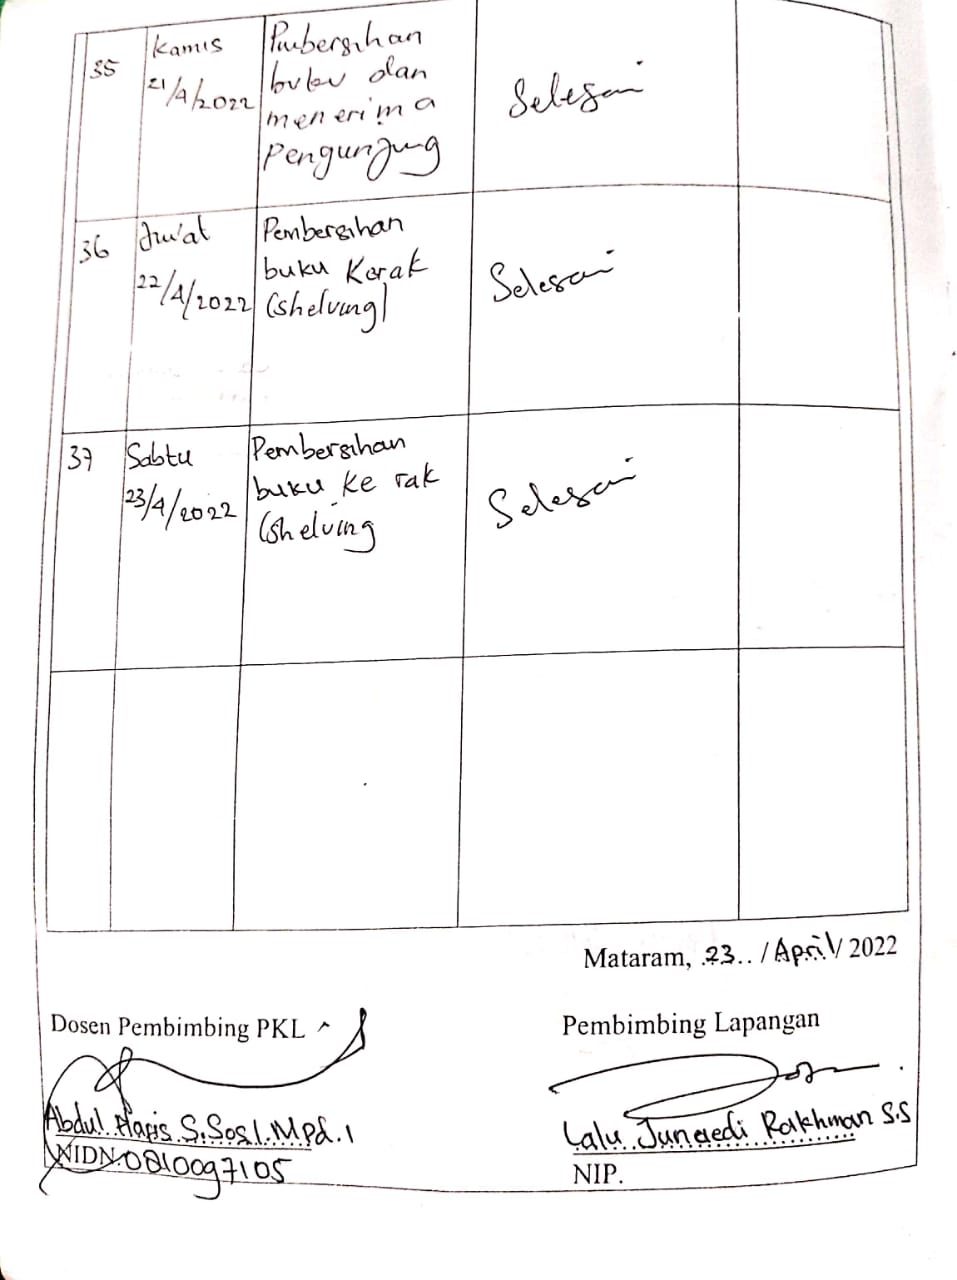 35
Kamis
21/4/2022
Pmbersihan
buku dan
menerima
Pengunjung
Selesai
36
Jum'at
22/4/2022
Pembersihan
buku Kerak
(shelving)
Selesai
37
Sabtu
23/4/2022
Pembersihan
buku ke rak
(shelving
Selesai
Mataram, .23.. /April/ 2022
Dosen Pembimbing PKL
Abdul Haris S.Sos.I.M.Pd.I
NIDN.0810097105
Pembimbing Lapangan
Lalu Junaedi Rakhman S.S
NIP.